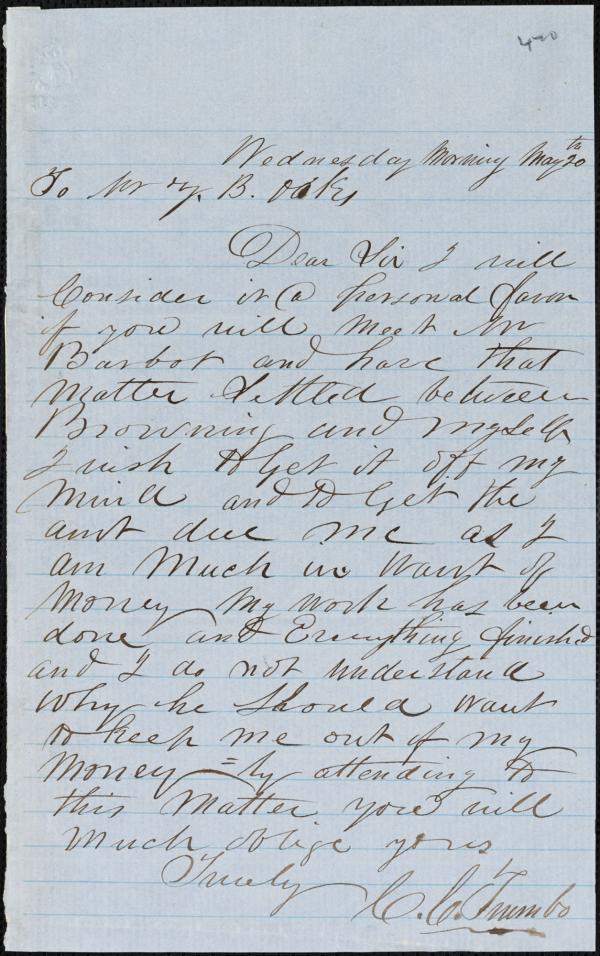 420
Wednesday Morning May 20th
To Mr Z. B. Oakes
Dear Sir I will
Consider it a personal favor
if you will meet Mr
Barbot and have that
Matter Settled between
Browning and Myself
I wish to Get it off my
Mind and to Get the
amt due me as I
am Much in Want of
Money My Work has been
done and Everything finished
and I do not understand
Why he Should Want
to keep me out of my
Money = by attending to
this Matter you will
Much oblige yours
Truely
C. C. Trumbo